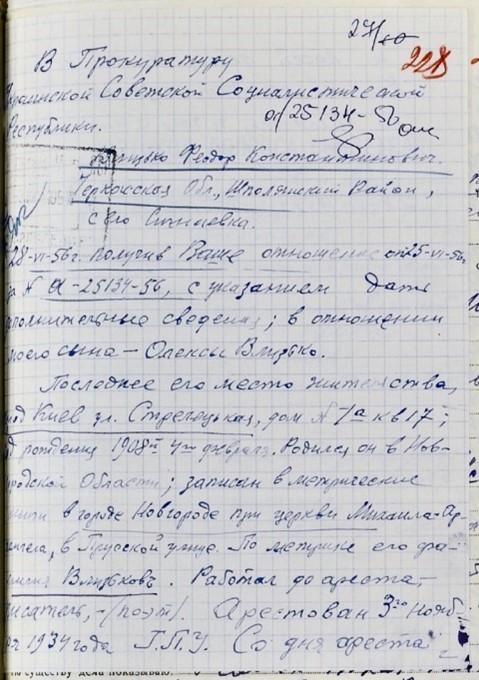 27/10
228
В Прокуратуру
Украинской Советской Социалистической
ол/25134-56
Республики.
Феодор Константинович.
Черкасская Обл., Шполянский Район,
село Сигнаевка.
28-VI-56г. Получив Ваше отношение от 25-VI-56г
за № ол-25134-56, с указанием дать
дополнительные сведения; в отношении
моего сына – Олексы Влызько.
Последнее его место жительства,
город Киев ул. Стрелецькая, дом № 7а кв 17;
год рождения 1908го 4го февраля. Родился он в Нов-
городской Области; записан в метрические
книги в городе Новгороде при церкви Михаила-Ар-
хангела, в Прусской улице. По метрике его фа-
милия Влызьковъ. Работал до ареста –
писатель, – (поэт). Арестован 3го нояб-
ря 1934 года Г.П.У. Со дня ареста
по существу дела показываю: